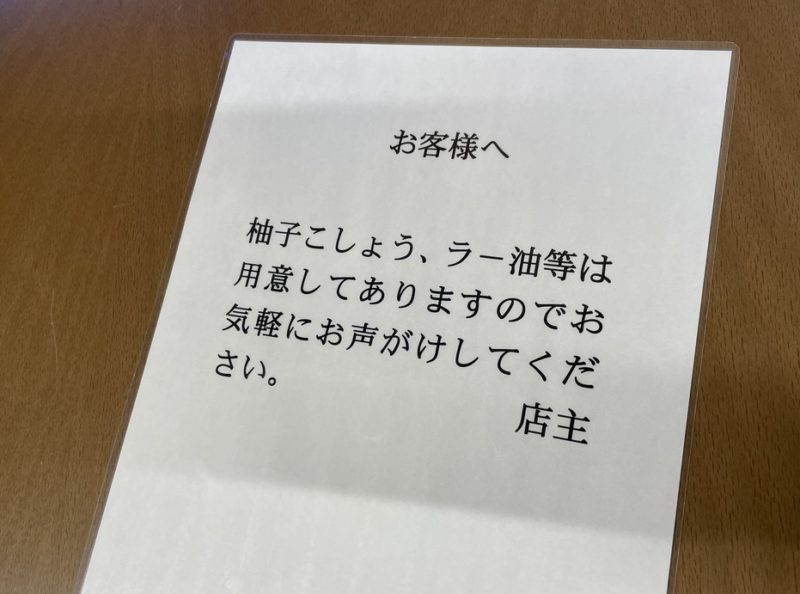 お客様へ
柚子こしょう、ラー油等は
用意してありますのでお
気軽にお声がけしてくだ
さい。
店主